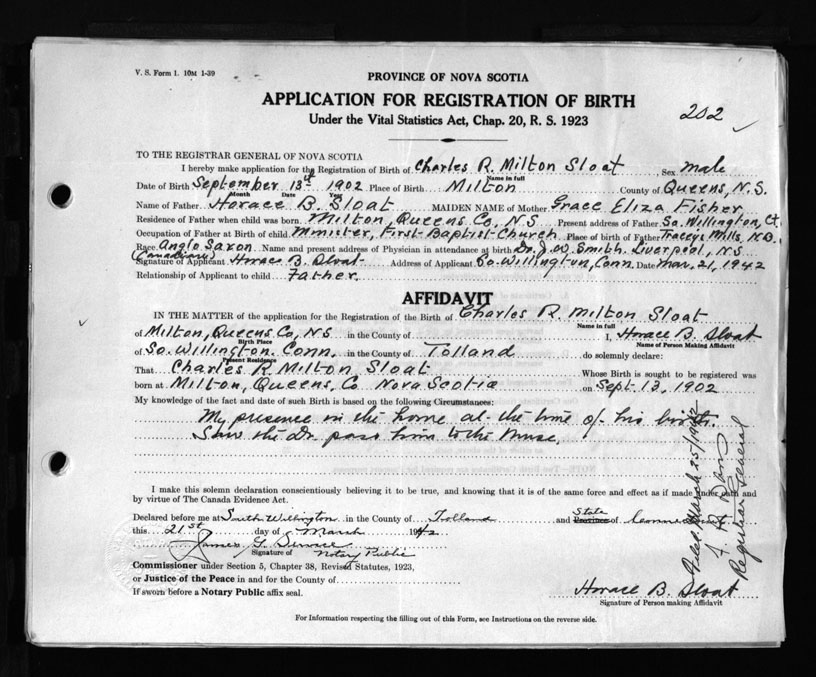 V. S. Form 1. 10M 1-39
PROVINCE OF NOVA SCOTIA
APPLICATION FOR REGISTRATION OF BIRTH
202
Under the Vital Statistics Act, Chap. 20, R. S. 1923
TO THE REGISTRAR GENERAL OF NOVA SCOTIA
I hereby make application for the Registration of Birth of Charles R. Milton Sloat Sex male
Name in full
Date of Birth September 13th 1902 Place of Birth Milton County of Queens, N.S.
Month Date Year
Name of Father Horace B. Sloat MAIDEN NAME of Mother Grace Eliza Fisher
Residence of Father when child was born Milton, Queens Co, N.S Present address of Father So. Willington, Ct.
Occupation of Father at Birth of child Minister, First Baptist Church Place of birth of Father Traceys Mills, N.B.
Race Anglo Saxon Name and present address of Physician in attendance at birth Dr. J.W. Smith. Liverpool, N.S
(Canadian)
Signature of Applicant Horace B. Sloat Address of Applicant So. Willington, Conn. Date Mar. 21, 1942
Relationship of Applicant to child Father.
AFFIDAVIT
IN THE MATTER of the application for the Registration of the Birth of Charles R. Milton Sloat
Name in full
of Milton, Queens Co, N S in the County of I, Horace B. Sloat
Birth Place Name of Person Making Affidavit
of So. Willington. Conn. in the County of Tolland do solemnly declare:
Present Residence
That Charles R. Milton Sloat Whose Birth is sought to be registered was
born at Milton, Queens, Co Nova Scotia on Sept. 13, 1902
My knowledge of the fact and date of such Birth is based on the following Circumstances:
My presence in the home at the time of his birth.
Saw the Dr. pass him to the nurse,
I make this solemn declaration conscientiously believing it to be true, and knowing that it is of the same force and effect as if made under oath and
by virtue of The Canada Evidence Act.
Declared before me at South Willington in the County of Tolland and State Province of Connecticut
this 21st day of March 1942
James G.
Signature of Notary Public
Commissioner under Section 5, Chapter 38, Revised Statutes, 1923,
or Justice of the Peace in and for the County of
If sworn before a Notary Public affix seal.
Horace B. Sloat
Signature of Person making Affidavit
For Information respecting the filling out of this Form, see Instructions on the reverse side.
Filed March 25/1942
Registrar General